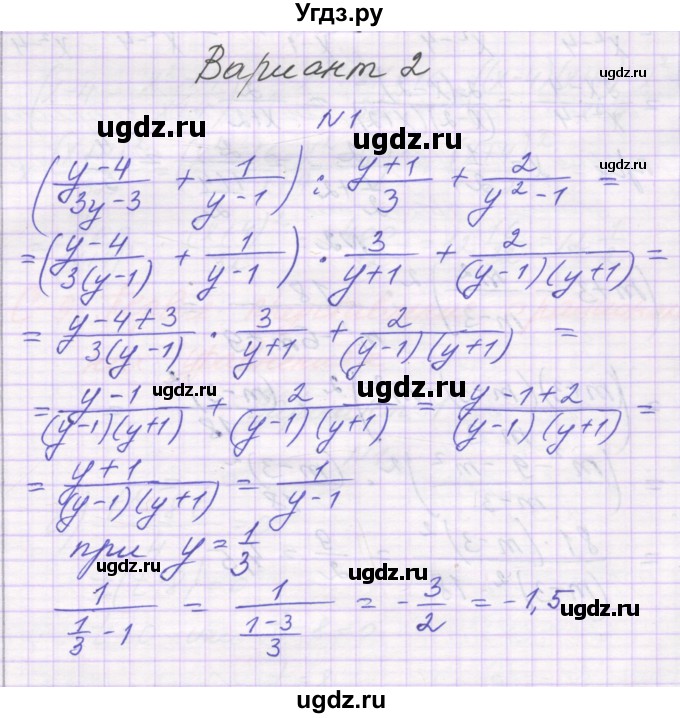 Угдз.ру
Вариант 2
ugdz.ru
ugdz.ru
N1
ugdz.ru
((y-4)/(3y-3) + 1/(y-1)) : (y+1)/3 + 2/(y²-1) =
= ((y-4)/(3(y-1)) + 1/(y-1)) · 3/(y+1) + 2/((y-1)(y+1)) =
= (y-4+3)/(3(y-1)) · 3/(y+1) + 2/((y-1)(y+1)) =
ugdz.ru
ugdz.ru
ugdz.ru
= (y-1)/((y-1)(y+1)) + 2/((y-1)(y+1)) = (y-1+2)/((y-1)(y+1)) =
= (y+1)/((y-1)(y+1)) = 1/(y-1)
при y = 1/3
ugdz.ru
ugdz.ru
1/(1/3 - 1) = 1/((1-3)/3) = -3/2 = -1,5
ugdz.ru
ugdz.ru